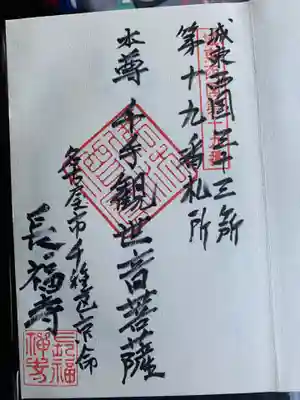 城東西国三十三ヶ所
第十九番札所
本尊 千手観世音菩薩
名古屋市千種区京命
長福寺
長福
禪寺